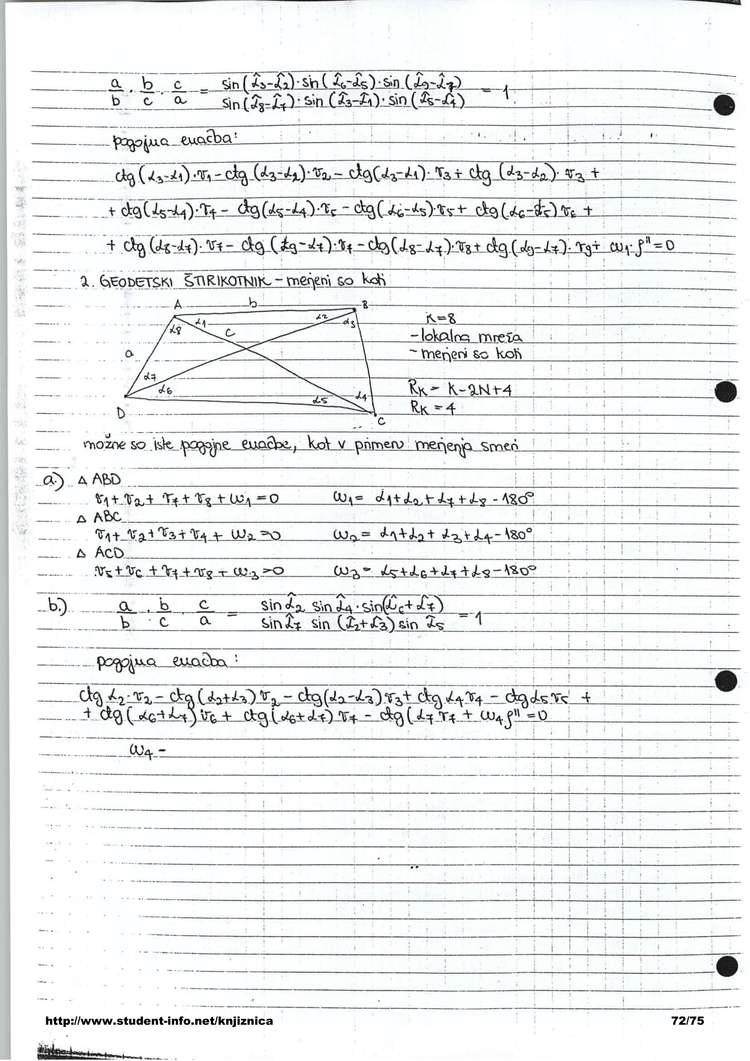 a/b · b/c · c/a = sin(α̂3-α̂2)·sin(α̂6-α̂5)·sin(α̂9-α̂7) / sin(α̂8-α̂7)·sin(α̂3-α̂1)·sin(α̂5-α̂4) = 1
pogojna enačba:
ctg(α3-α1)·v1 - ctg(α3-α2)·v2 - ctg(α3-α1)·v3 + ctg(α3-α2)·v3 +
+ ctg(α5-α4)·v4 - ctg(α5-α4)·v5 - ctg(α6-α5)·v5 + ctg(α6-α5)v6 +
+ ctg(α8-α7)·v7 - ctg(α9-α7)·v7 - ctg(α8-α7)·v8 + ctg(α9-α7)·v9 + ω1·ρ"=0
2. GEODETSKI ŠTIRIKOTNIK - merjeni so koti
A b B
α8 α1 c α2 α3
a
α7 α6 α5 α4
D C
K=8
- lokalna mreža
- merjeni so koti
RK = K-2N+4
RK = 4
možne so iste pogojne enačbe, kot v primeru merjenja smeri
a.) △ ABD
v1+v2+v7+v8+ω1=0 ω1= α1+α2+α7+α8-180°
△ ABC
v1+v2+v3+v4+ω2=0 ω2= α1+α2+α3+α4-180°
△ ACD
v5+v6+v7+v8+ω3=0 ω3= α5+α6+α7+α8-180°
b.) a/b · b/c · c/a = sin α̂2 sin α̂4·sin(α̂6+α̂7) / sin α̂7 sin(α̂2+α̂3) sin α̂5 = 1
pogojna enačba:
ctg α2·v2 - ctg(α2+α3)v2 - ctg(α2-α3)v3 + ctg α4 v4 - ctg α5 v5 +
+ ctg(α6+α7)v6 + ctg(α6+α7)v7 - ctg(α7 v7 + ω4 ρ"=0
ω4 -
http://www.student-info.net/knjiznica 72/75